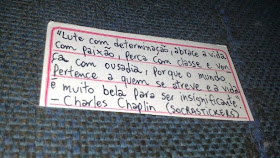 "Lute com determinação, abrace a vida
com paixão, perca com classe e ven
ça com ousadia, porque o mundo
pertence a quem se atreve e a vida
é muito bela para ser insignificante".
- Charles Chaplin (SOCRASTICKERS)